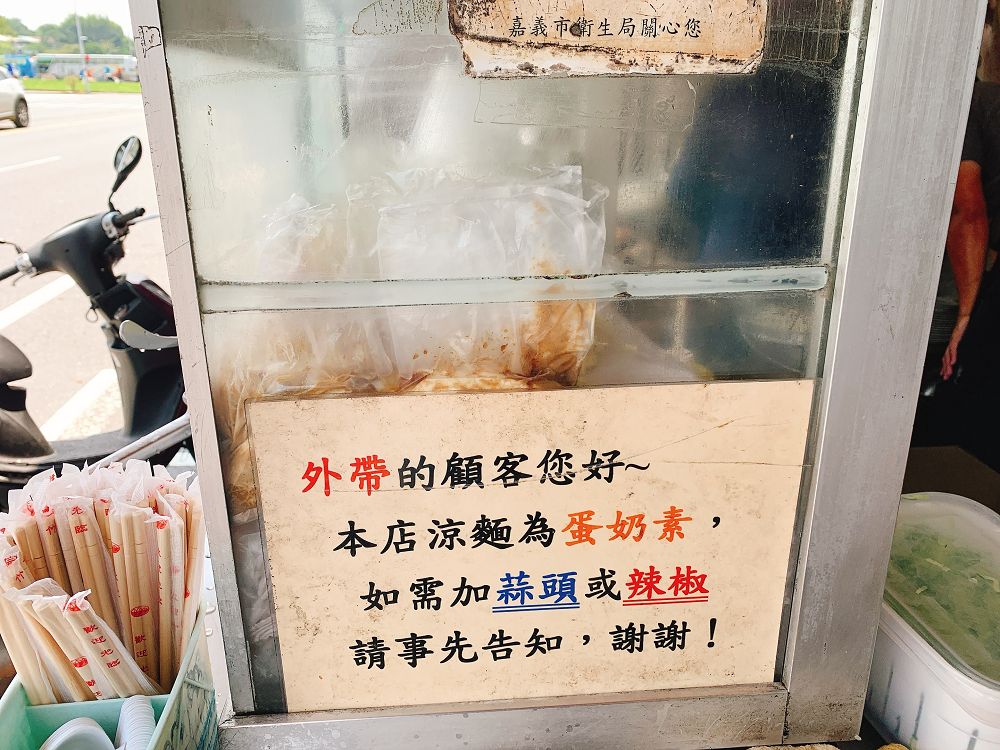 嘉義市衛生局關心您
外帶的顧客您好~
本店涼麵為蛋奶素，
如需加蒜頭或辣椒
請事先告知，謝謝！